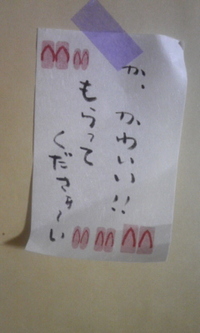 か、かわいい!!
もらって
くださぁ〜い